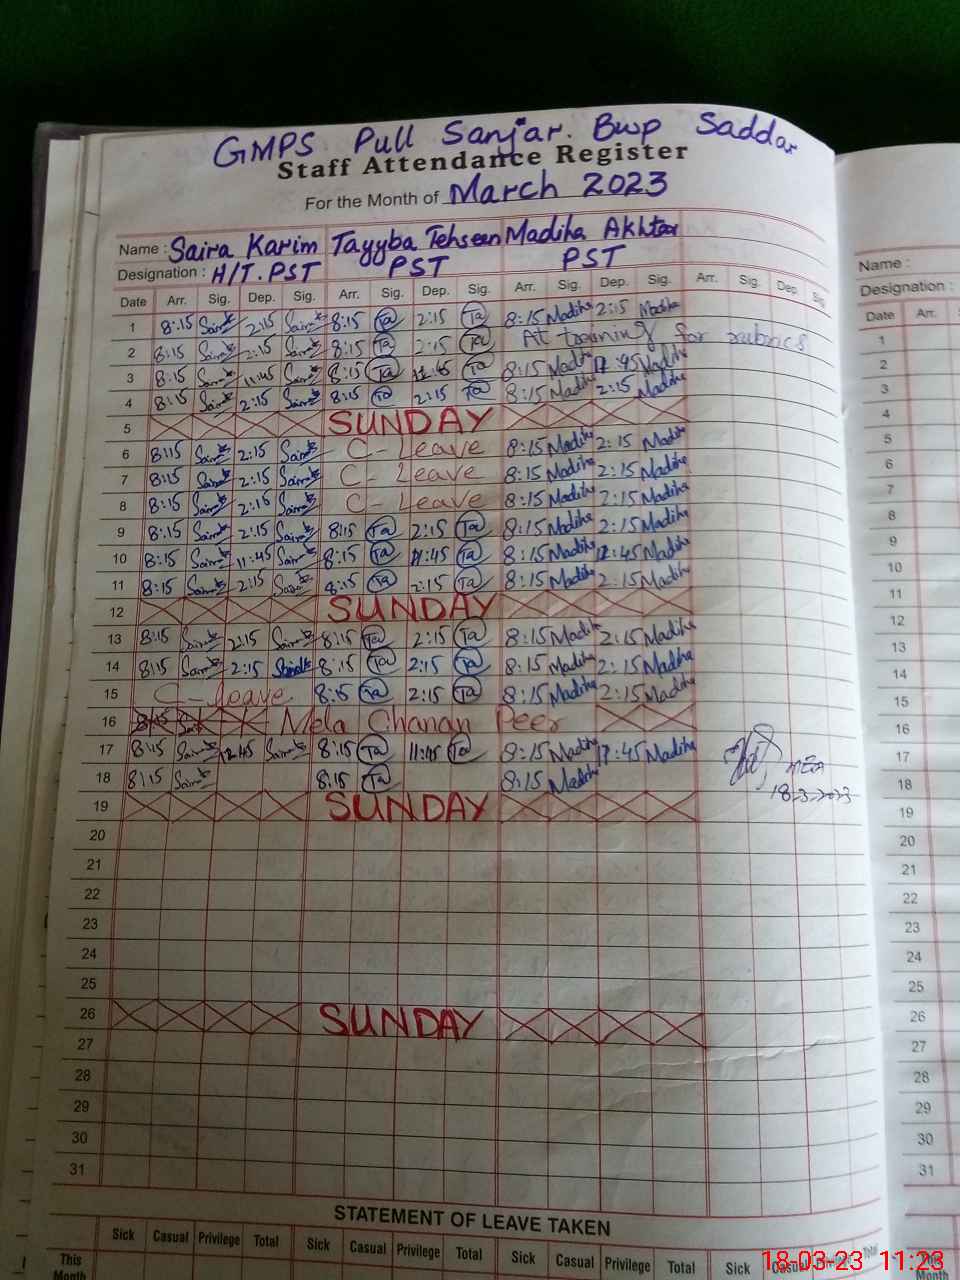 GMPS Pull Sanjar. Bwp Saddar
Staff Attendance Register
For the Month of March 2023
Name : Saira Karim Tayyba Tehseen Madiha Akhtar
Designation : H/T. PST PST PST
Date Arr. Sig. Dep. Sig. Arr. Sig. Dep. Sig. Arr. Sig. Dep. Sig. Arr. Sig. Dep. Sig.
1 8:15 Saira 2:15 Saira 8:15 Ta 2:15 Ta 8:15 Madiha 2:15 Madiha
2 8:15 Saira 2:15 Saira 8:15 Ta 2:15 Ta At training for rubrics
3 8:15 Saira 11:45 Saira 8:15 Ta 11:45 Ta 8:15 Madiha 45 Madiha
4 8:15 Saira 2:15 Saira 8:15 Ta 2:15 Ta 8:15 Madiha 2:15 Madiha
5 SUNDAY
6 8:15 Saira 2:15 Saira C-Leave 8:15 Madiha 2:15 Madiha
7 8:15 Saira 2:15 Saira C-Leave 8:15 Madiha 2:15 Madiha
8 8:15 Saira 2:15 Saira C-Leave 8:15 Madiha 2:15 Madiha
9 8:15 Saira 2:15 Saira 8:15 Ta 2:15 Ta 8:15 Madiha 2:15 Madiha
10 8:15 Saira 11:45 Saira 8:15 Ta 11:45 Ta 8:15 Madiha 45 Madiha
11 8:15 Saira 2:15 Saira 8:15 Ta 2:15 Ta 8:15 Madiha 2:15 Madiha
12 SUNDAY
13 8:15 Saira 2:15 Saira 8:15 Ta 2:15 Ta 8:15 Madiha 2:15 Madiha
14 8:15 Saira 2:15 Saira 8:15 Ta 2:15 Ta 8:15 Madiha 2:15 Madiha
15 C-leave 8:15 Ta 2:15 Ta 8:15 Madiha 2:15 Madiha
16 Mela Chanan Peer
17 8:15 Saira 12:45 Saira 8:15 Ta 11:45 Ta 8:15 Madiha 45 Madiha
18 8:15 Saira 8:15 Ta 8:15 Madiha
18-3-2023
19 SUNDAY
20
21
22
23
24
25
26 SUNDAY
27
28
29
30
31
STATEMENT OF LEAVE TAKEN
Sick Casual Privilege Total Sick Casual Privilege Total Sick Casual Privilege Total
This Month
Name :
Designation :
Date Arr.
1
2
3
4
5
6
7
8
9
10
11
12
13
14
15
16
17
18
19
20
21
22
23
24
25
26
27
28
29
30
31
This Month
18-03-23 11:23